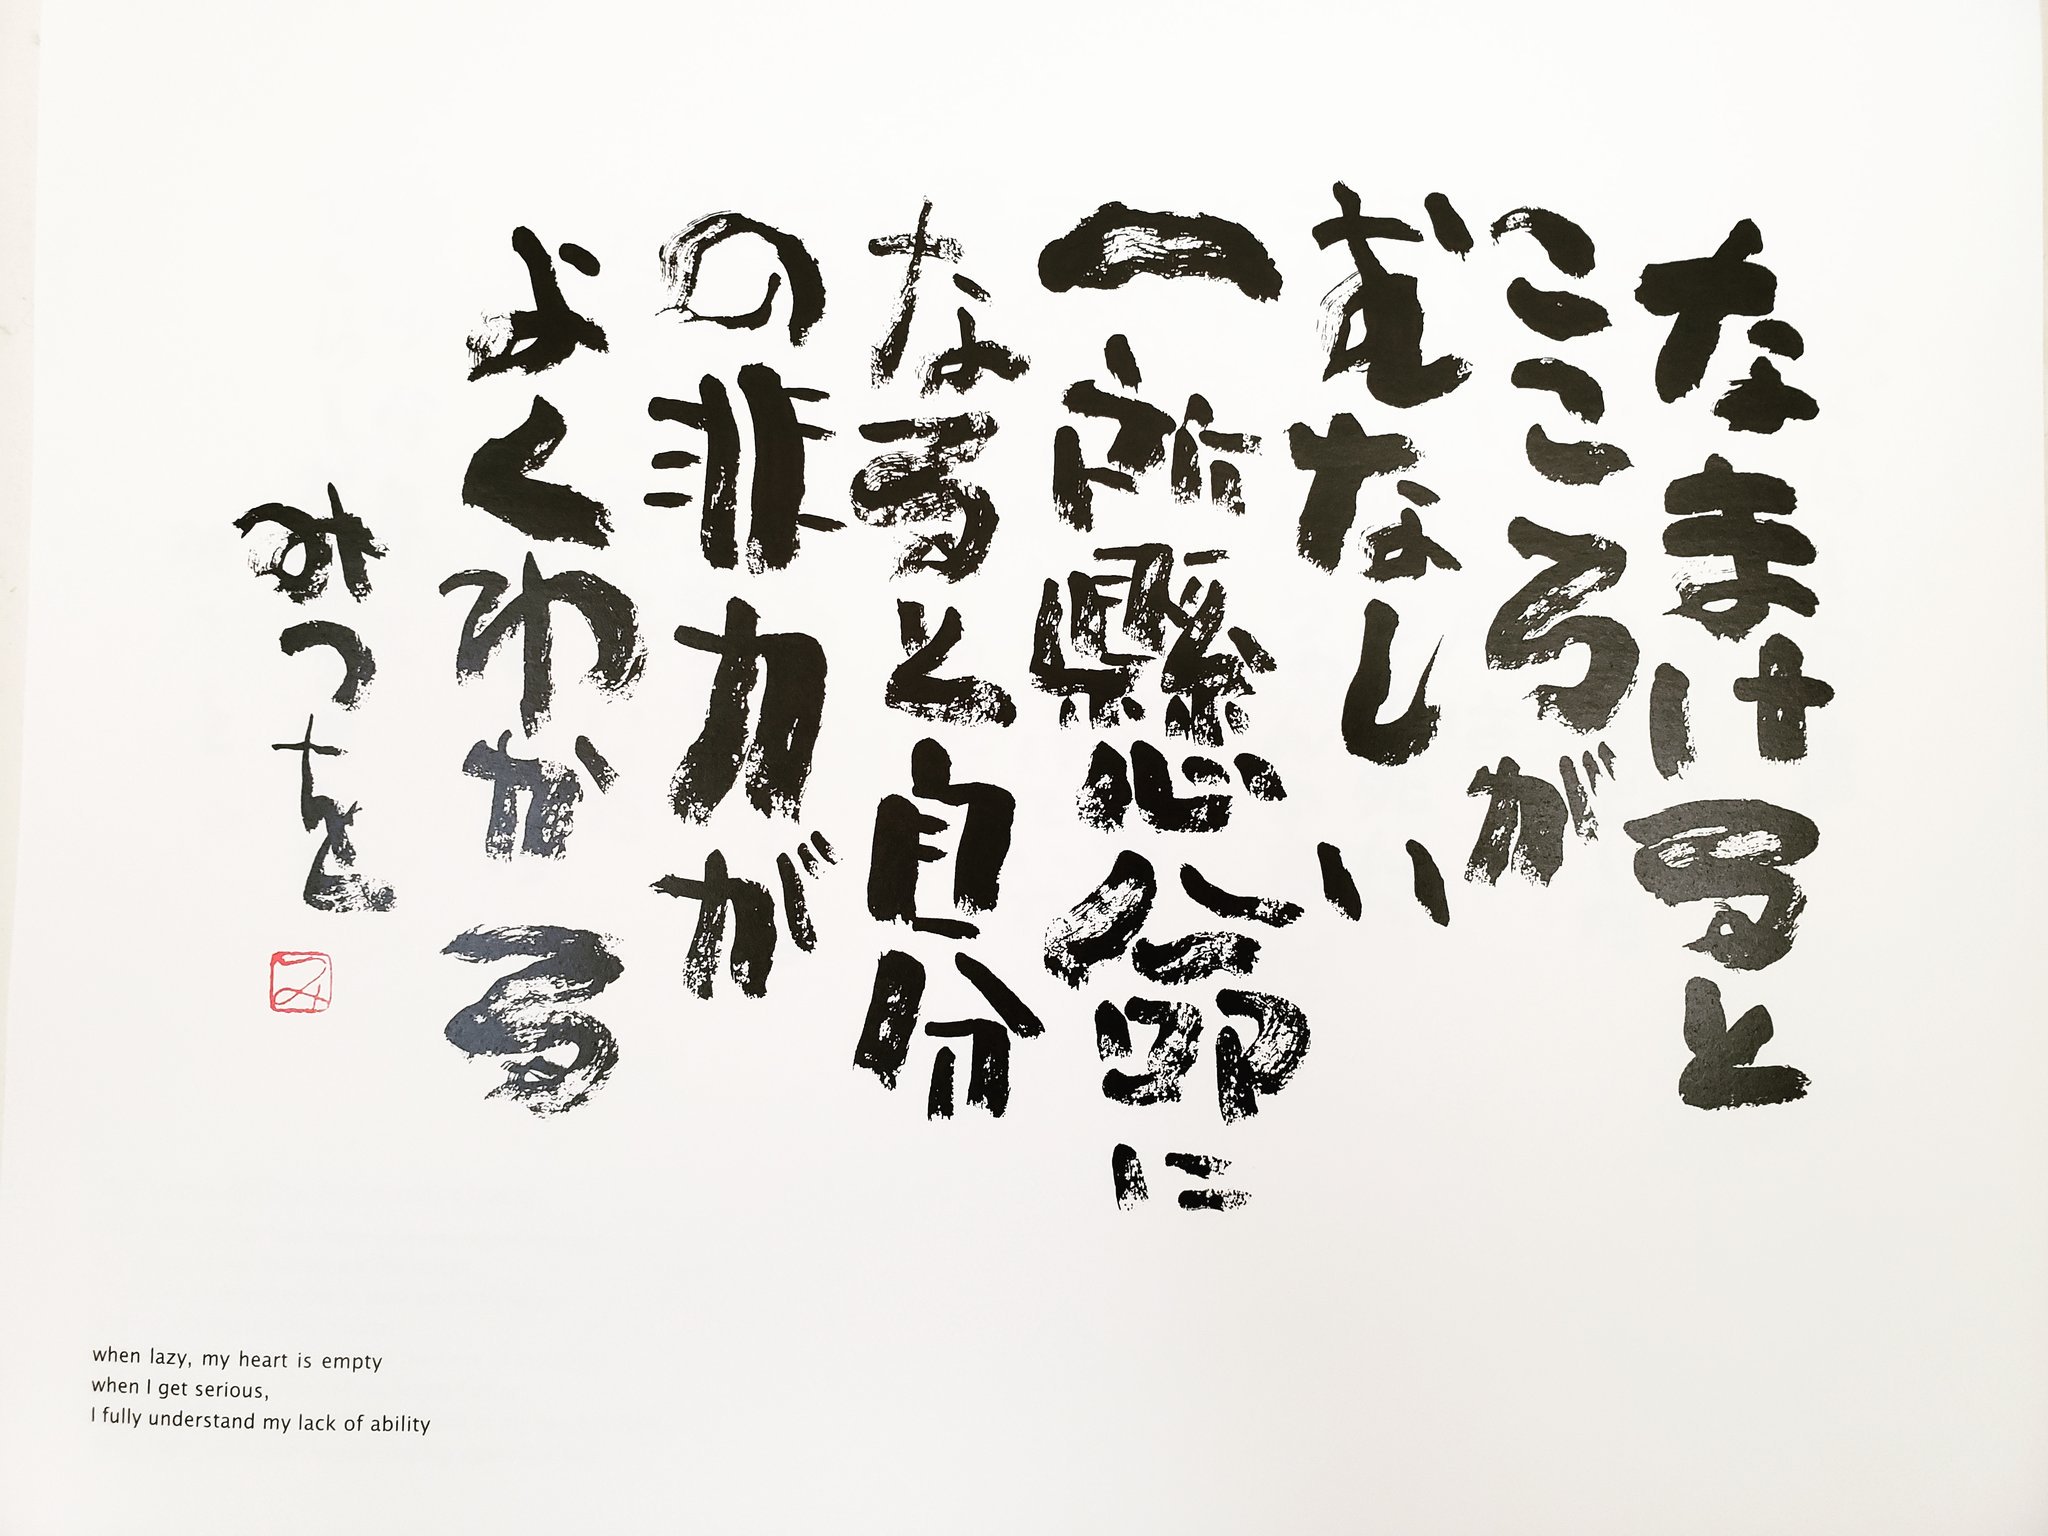 なまけると
こころが
むなしい
一所懸命に
なると自分
の非力が
よくわかる
みつを
み
when lazy, my heart is empty
when I get serious,
I fully understand my lack of ability